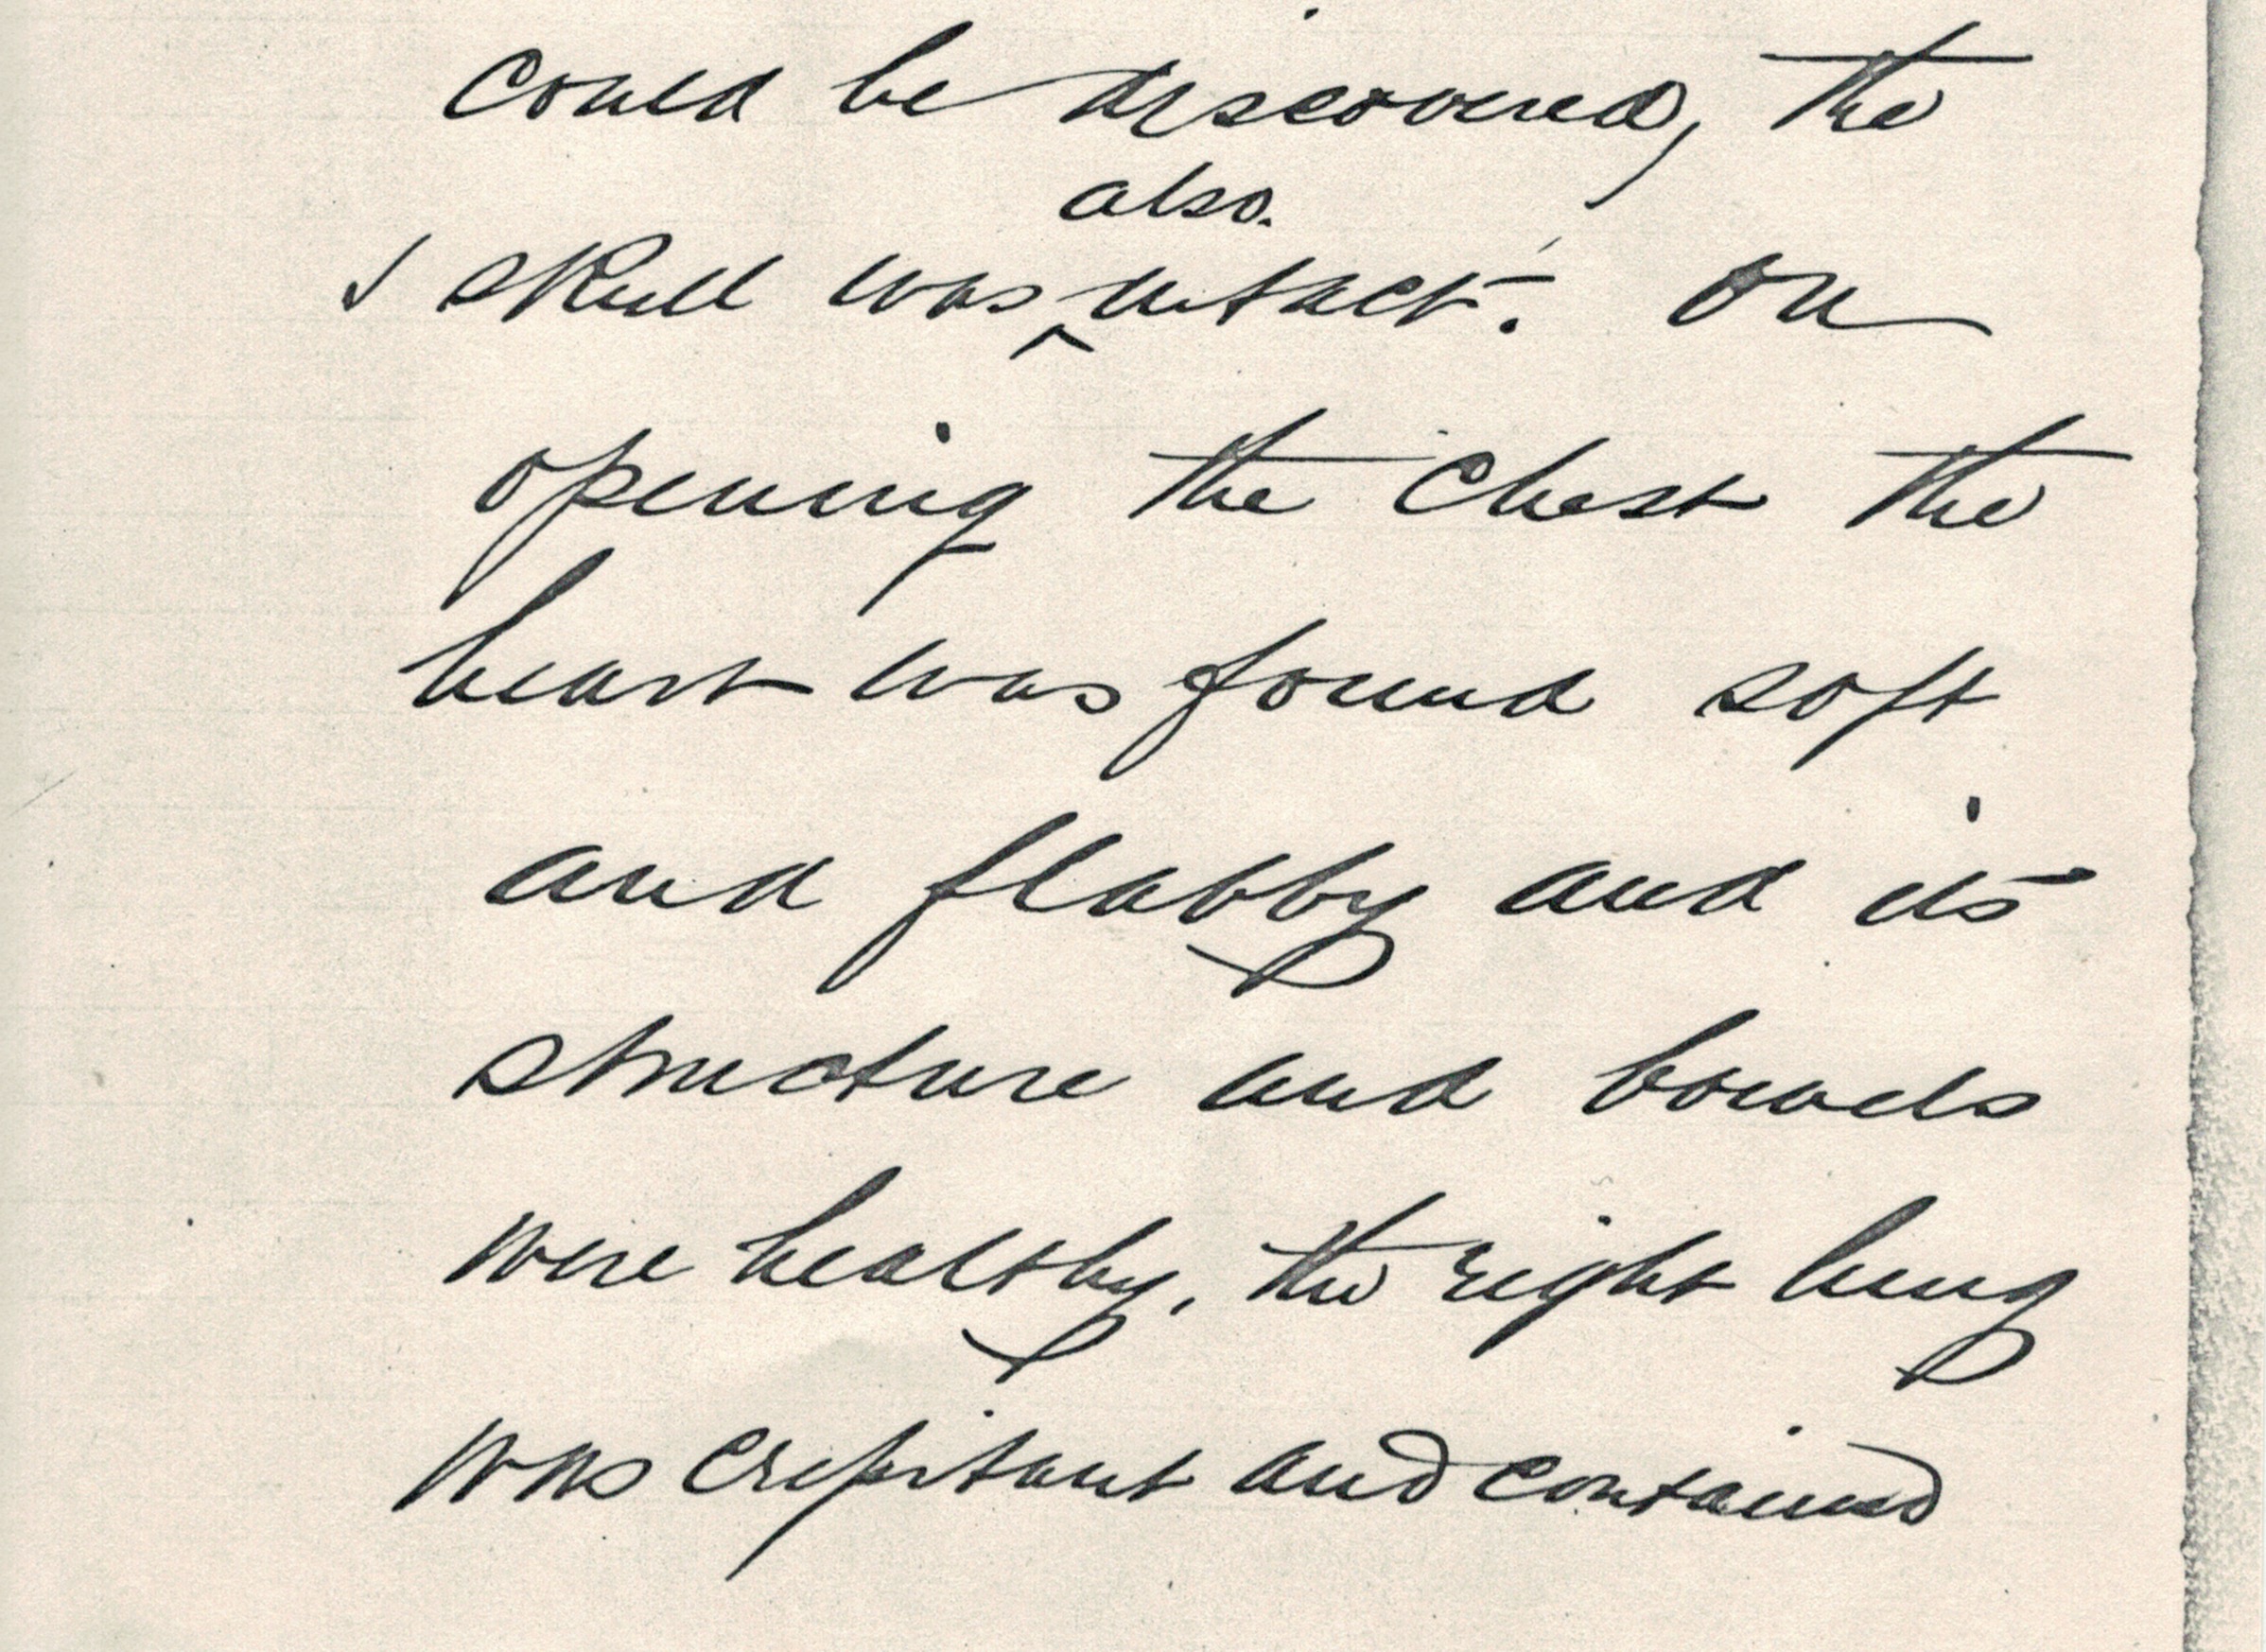 could be discovered, the
also.
skull was ^ intact. On
opening the chest the
heart was found soft
and flabby and its
structure and bowels
were healthy, the right lung
was crepitant and contained